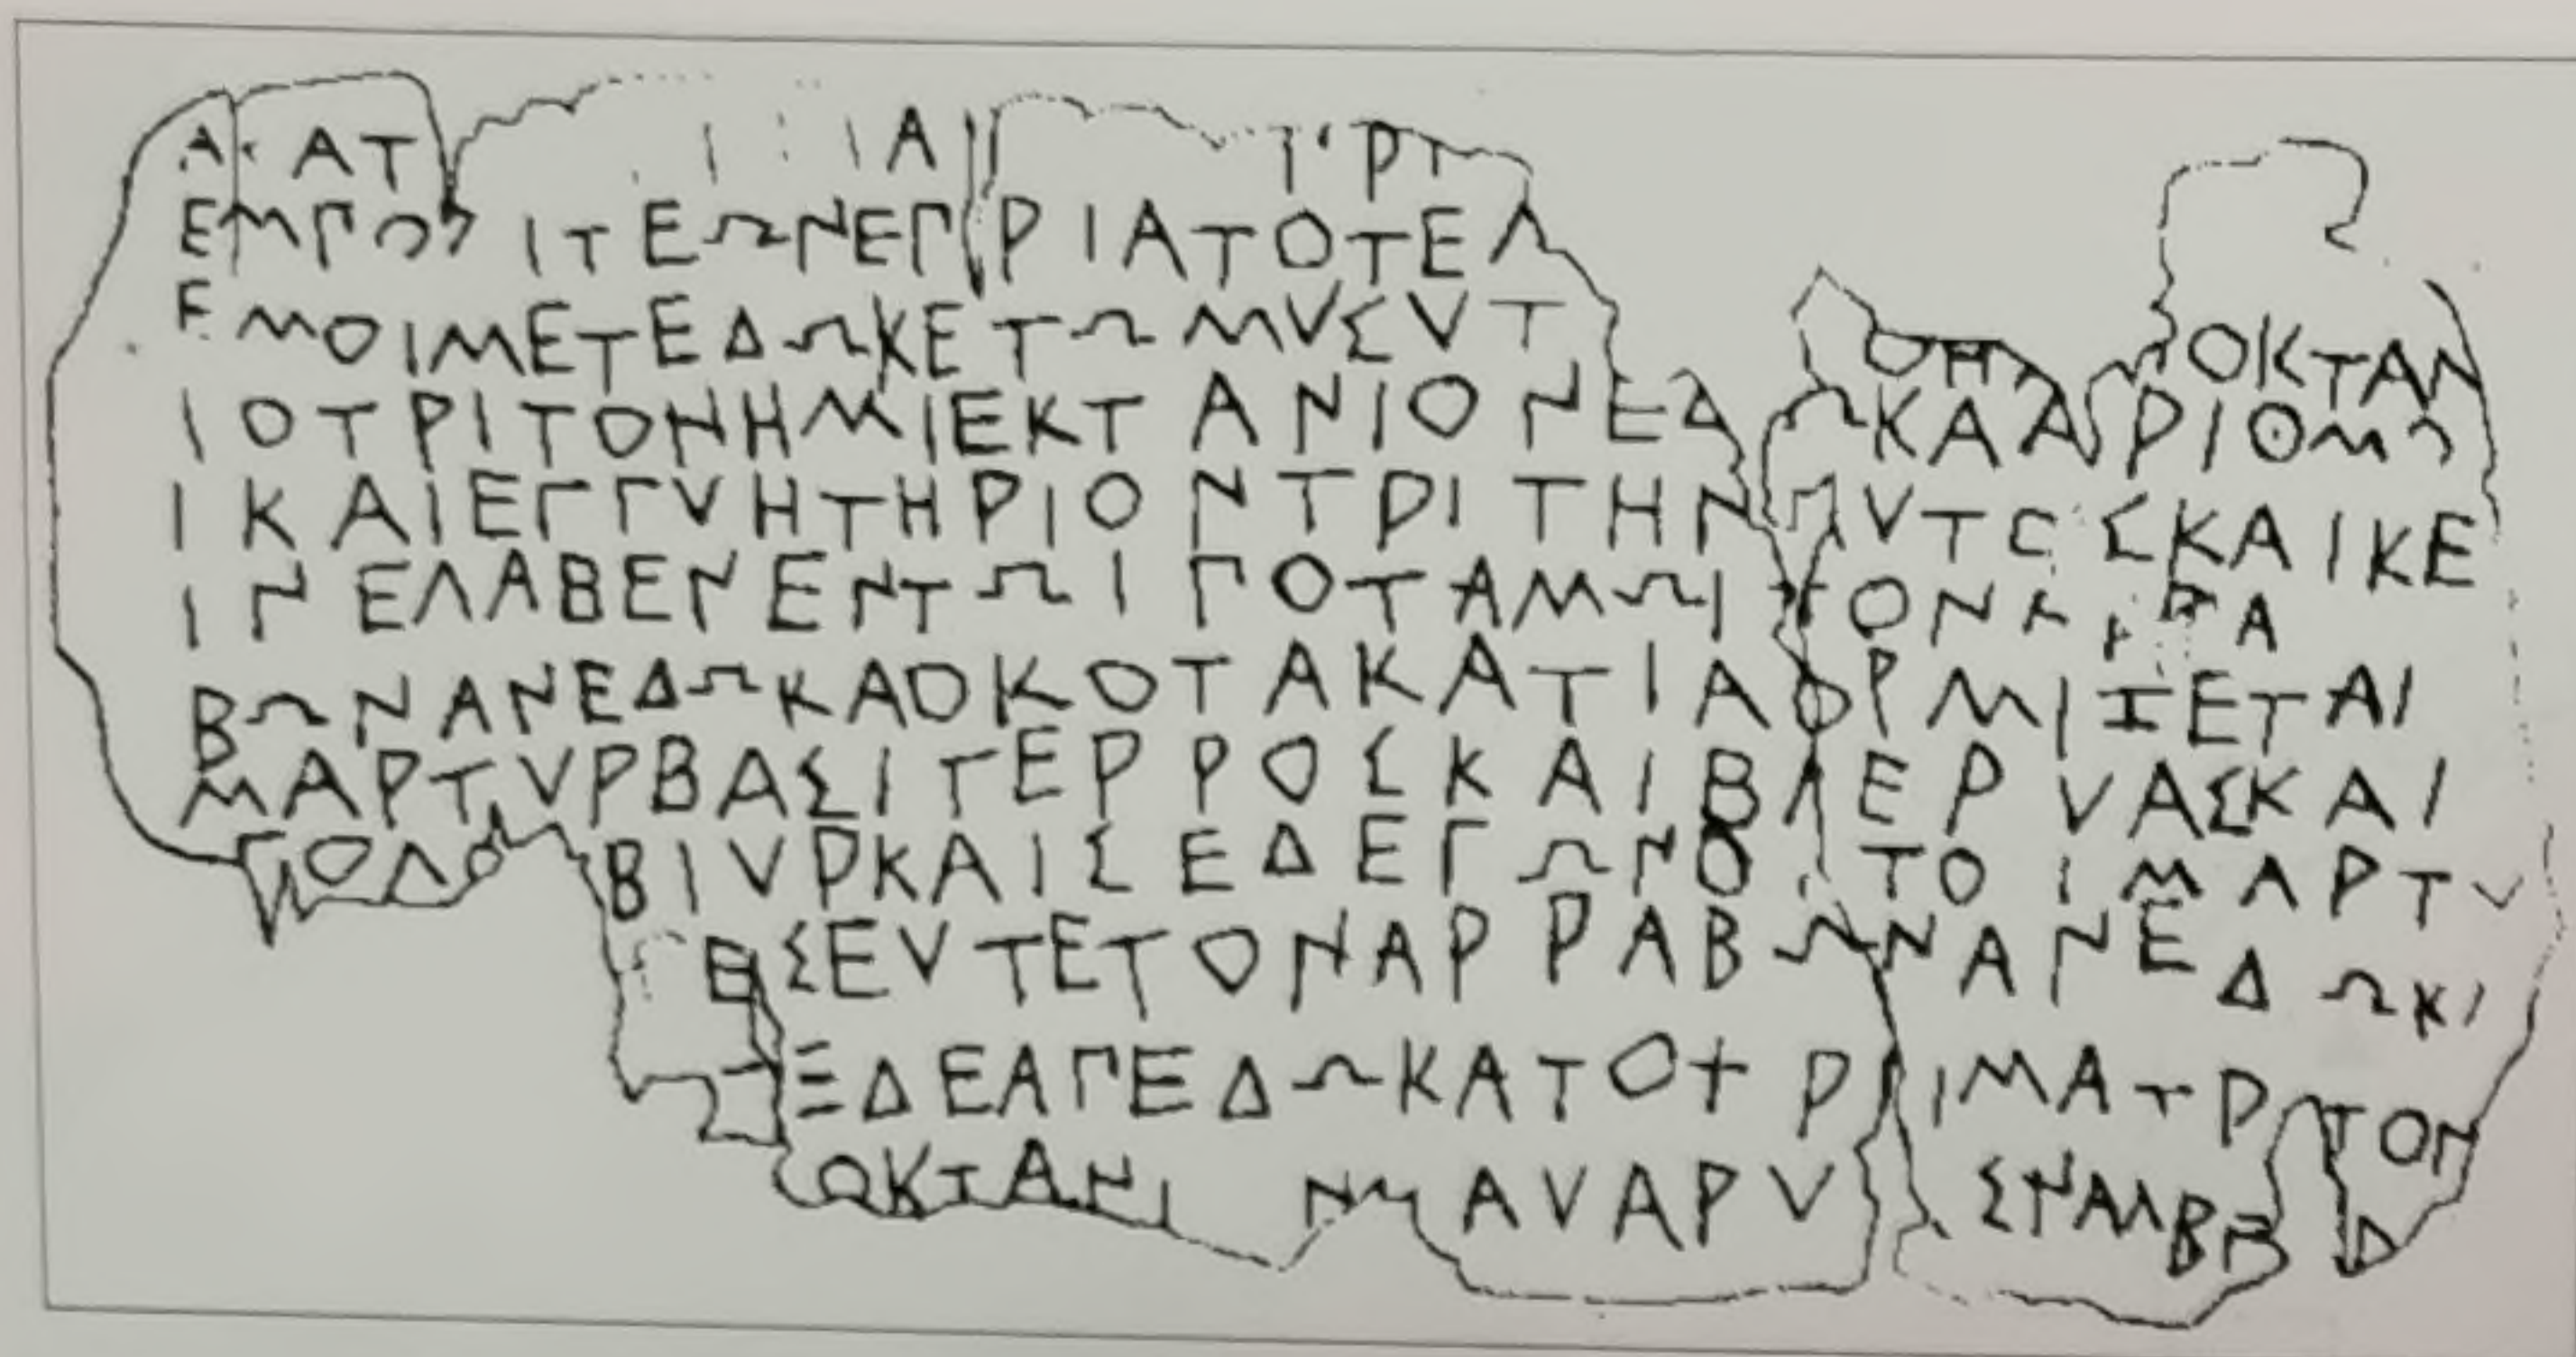 Α ΑΤ ΙΑ ΡΤ
ΕΜΠΟ ΙΤΕΩΝΕΠΡΙΑΤΟΤΕΛ
ΕΜΟΙΜΕΤΕΔΩΚΕΤΩΜΥΣΥΤ ΟΗ ΟΚΤΑΝ
ΙΟΤΡΙΤΟΝΗΜΙΕΚΤΑΝΙΟΝΕΔΩΚΑΑΡΙΘΜΩ
ΙΚΑΙΕΓΓΥΗΤΗΡΙΟΝΤΡΙΤΗΝΠΥΤΟΣΚΑΙΚΕ
ΙΝΕΛΑΒΕΝΕΝΤΩΙΠΟΤΑΜΩΙΤΟΝ Α
ΒΩΝΑΝΕΔΩΚΑΟΚΟΤΑΚΑΤΙΑΟΡΜΙΖΕΤΑΙ
ΜΑΡΤΥΡΒΑΣΙΓΕΡΡΟΣΚΑΙΒΛΕΡΥΑΣΚΑΙ
ΓΟΛΟ ΒΙΥΡΚΑΙΣΕΔΕΓΩΝΟ ΤΟΙΜΑΡΤΥ
ΕΣΕΥΤΕΤΟΝΑΡΡΑΒΩΝΑΝΕΔΩΚ
ΞΔΕΑΠΕΔΩΚΑΤΟΧΡΙΜΑΤΡ ΤΟΝ
ΟΚΤΑΝΙ Ν ΑΥΑΡΥ